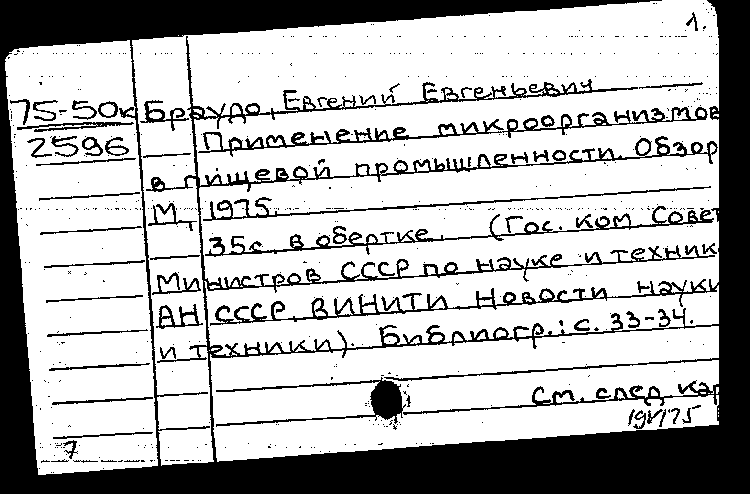 1.
75-50к Браудо, Евгений Евгеньевич
2596 Применение микроорганизмов
в пищевой промышленности. Обзор
М, 1975.
35с. в обертке. (Гос. ком Совет
Министров СССР по науке и техник
АН СССР. ВИНИТИ. Новости науки
и техники). Библиогр.: с. 33-34.
См. след кар
7